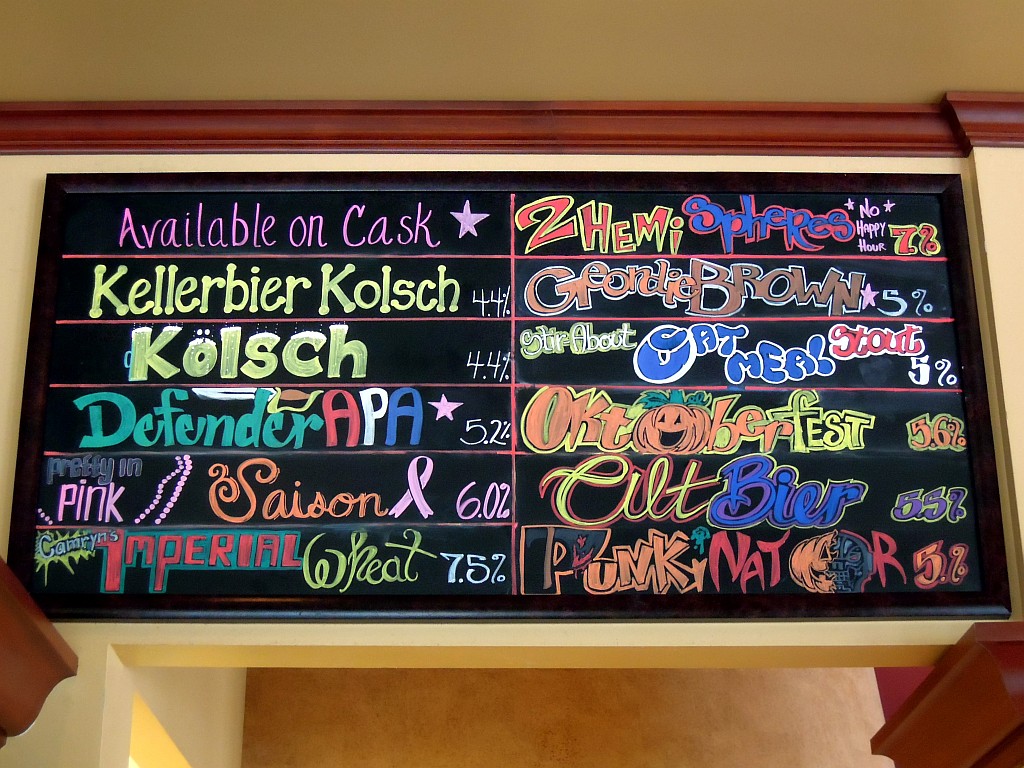 Available on Cask
Kellerbier Kolsch 4.4%
Kölsch 4.4%
Defender APA 5.2%
pretty in PINK Saison 6.0%
Camryn's IMPERIAL Wheat 7.5%
2 HEMi SpHeRes *No Happy Hour* 7%
Geordie BROWN 5%
Stir About OATMEAL Stout 5%
OktoberfEST 5.6%
Alt Bier 5.5%
PUNKiNATOR 5.%